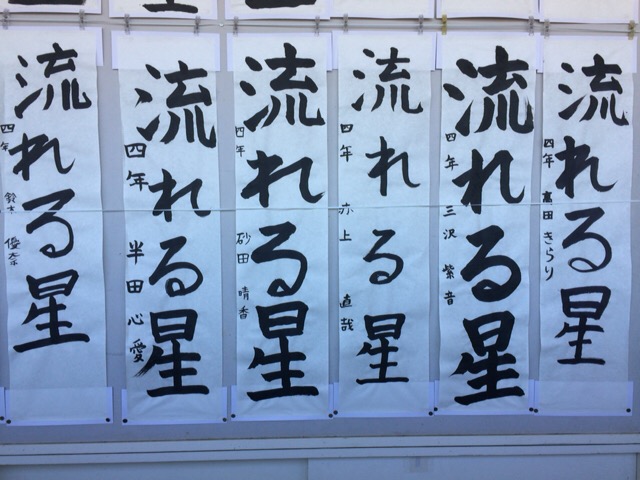 流れる星
四年 高田 きらり
流れる星
四年 三沢 紫音
流れる星
四年 赤上 直哉
流れる星
四年 砂田 晴香
流れる星
四年 半田 心愛
流れる星
四年 鈴木 優奈